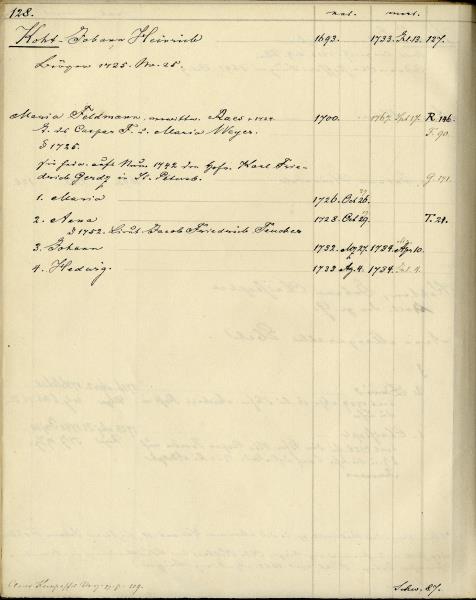 128.
nat. mort.
Koht Johann Heinrich 1693. 1733. Jul. 13. 127.
Bürger 1725. No. 25.
Maria Feldmann, Raes 1700. 1767. 17. R. 146.
T. d. Caspar F. & Maria Weyer. F. 90.
§ 1725.
1742 den Gesn. Karl Frie-
drich Gerdz in St. Petersb. G. 171.
1. Maria 1726. Oct. 26.
2. Anna 1728. Oct. 29. T. 29.
§ 1752. Lieut. Jacob Friedrich Teucher
3. Johann 1732. 27. 1734. Apr. 10.
4. Hedwig. 1733. Ag. 4. 1734. Jul. 4.
Schw. 87.